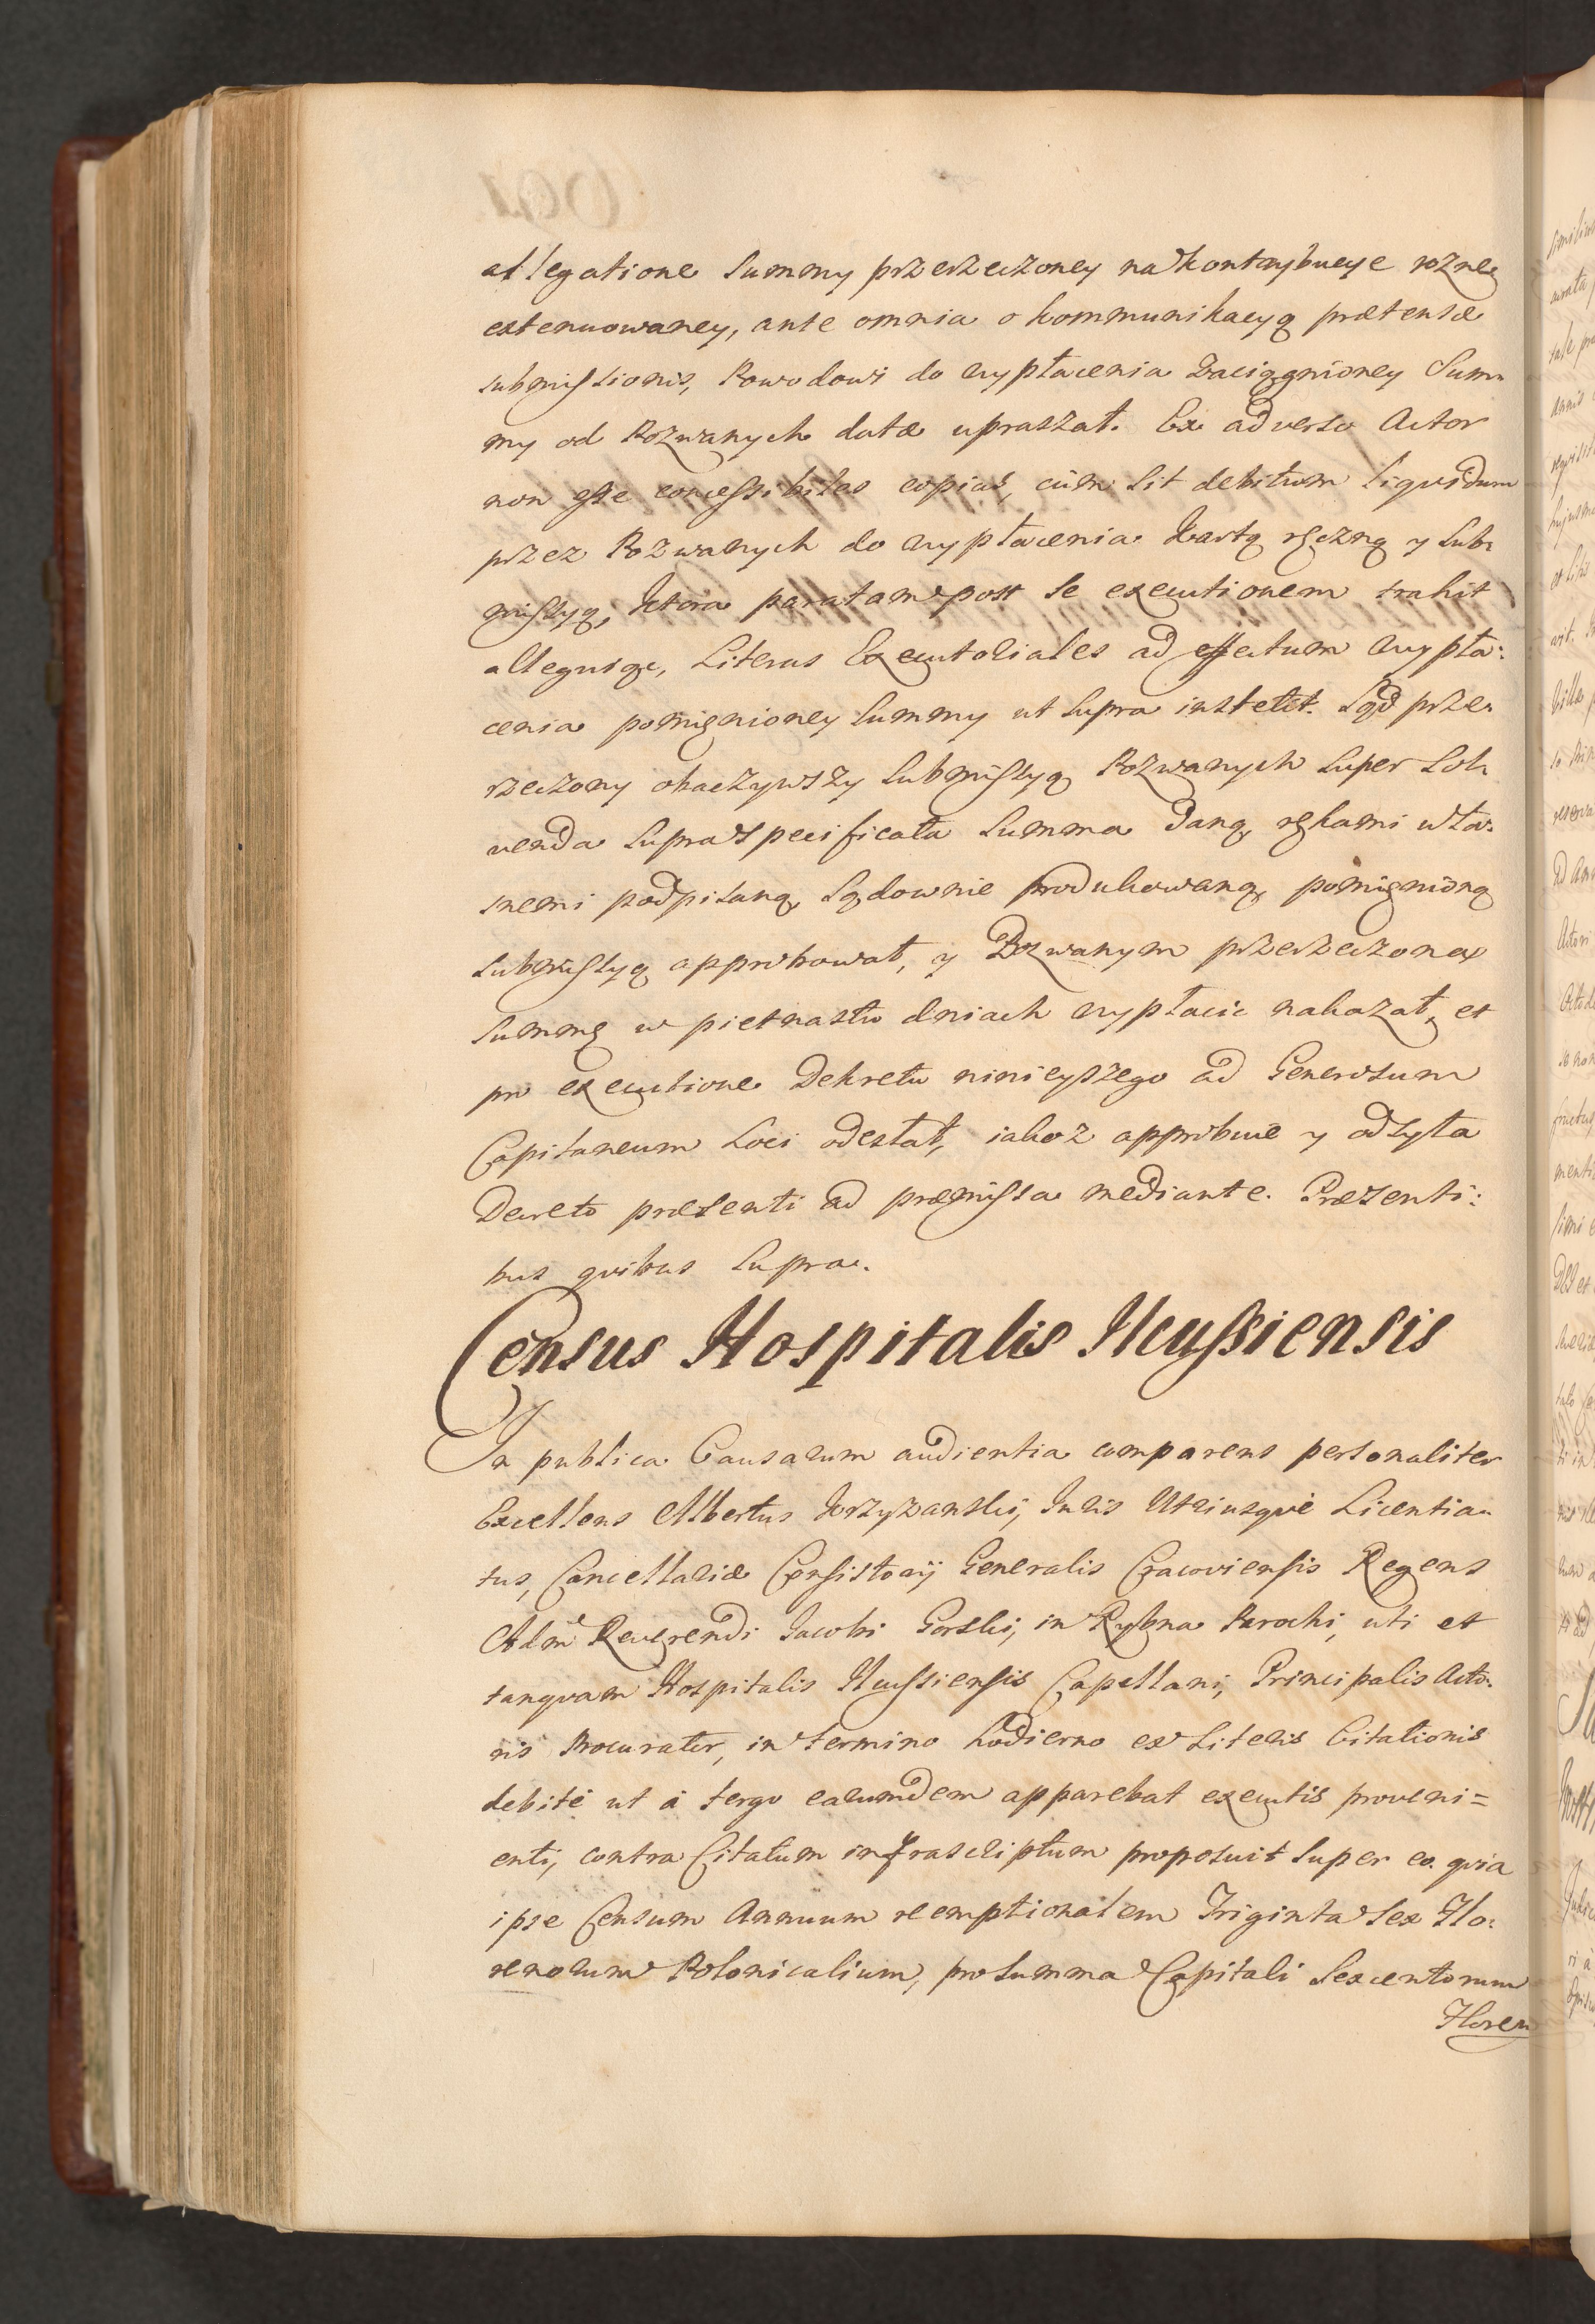 allegatione Summy przerzeczoney na kontrybucye rozne
extenuowaney, ante omnia o kommunikacyą prætensæ
submissionis, Powodowi do wypłacenia zaciągnioney Sum-
my od Pozwanych datæ upraszał. Ex adverso Actor
non esse concessibiles copias, cùm sit debitum liquidum
przez Pozwanych do wypłacenia kartą ręczną y Sub-
missyą, ktora paratam post se executionem trahit
allegusqe, Literas Executoriales ad effectum wypła:
cenia pomienioney Summy ut supra institit. Sąd prze-
rzeczony obaczywszy Submissyą Pozwanych super Sol-
venda supra specificata Summa daną, rękami wła-
snemi podpisaną, Sądownie produkowaną, pomienioną
Submissyą approbował, y Pozwanym przerzeczoną
Summę w pietnastu dniach wypłacic nakazał, et
pro executione Dekretu ninieyszego ad Generosum
Capitaneum Loci odesłał, iakoż approbuie y odsyła
Decreto præsenti ad præmissa mediante. Præsenti:
bus quibus supra.
Census Hospitalis Ilcussiensis
In publica Causarum audientia comparens personaliter
Excellens Albertus Krzyżanski, Juris Utriusqvè Licentia-
tus, Cancellariæ Consistorij Generalis Cracoviensis Regens
Adm Reverendi Jacobi Gorski, in Rybna Parochi, uti et
tanqvam Hospitalis Ilcussiensis Capellani, Principalis Acto-
ris Procurator, in termino hodierno ex Literis Citationis
debitè ut à tergo earumdem apparebat executis proveni=
enti, contra Citatum infrascriptum proposuit super eo. qvia
ipse Censum Annuum reemptionalem Triginta Sex Flo-
renorum Polonicalium, pro Summa Capitali Sexcentorum
Floren